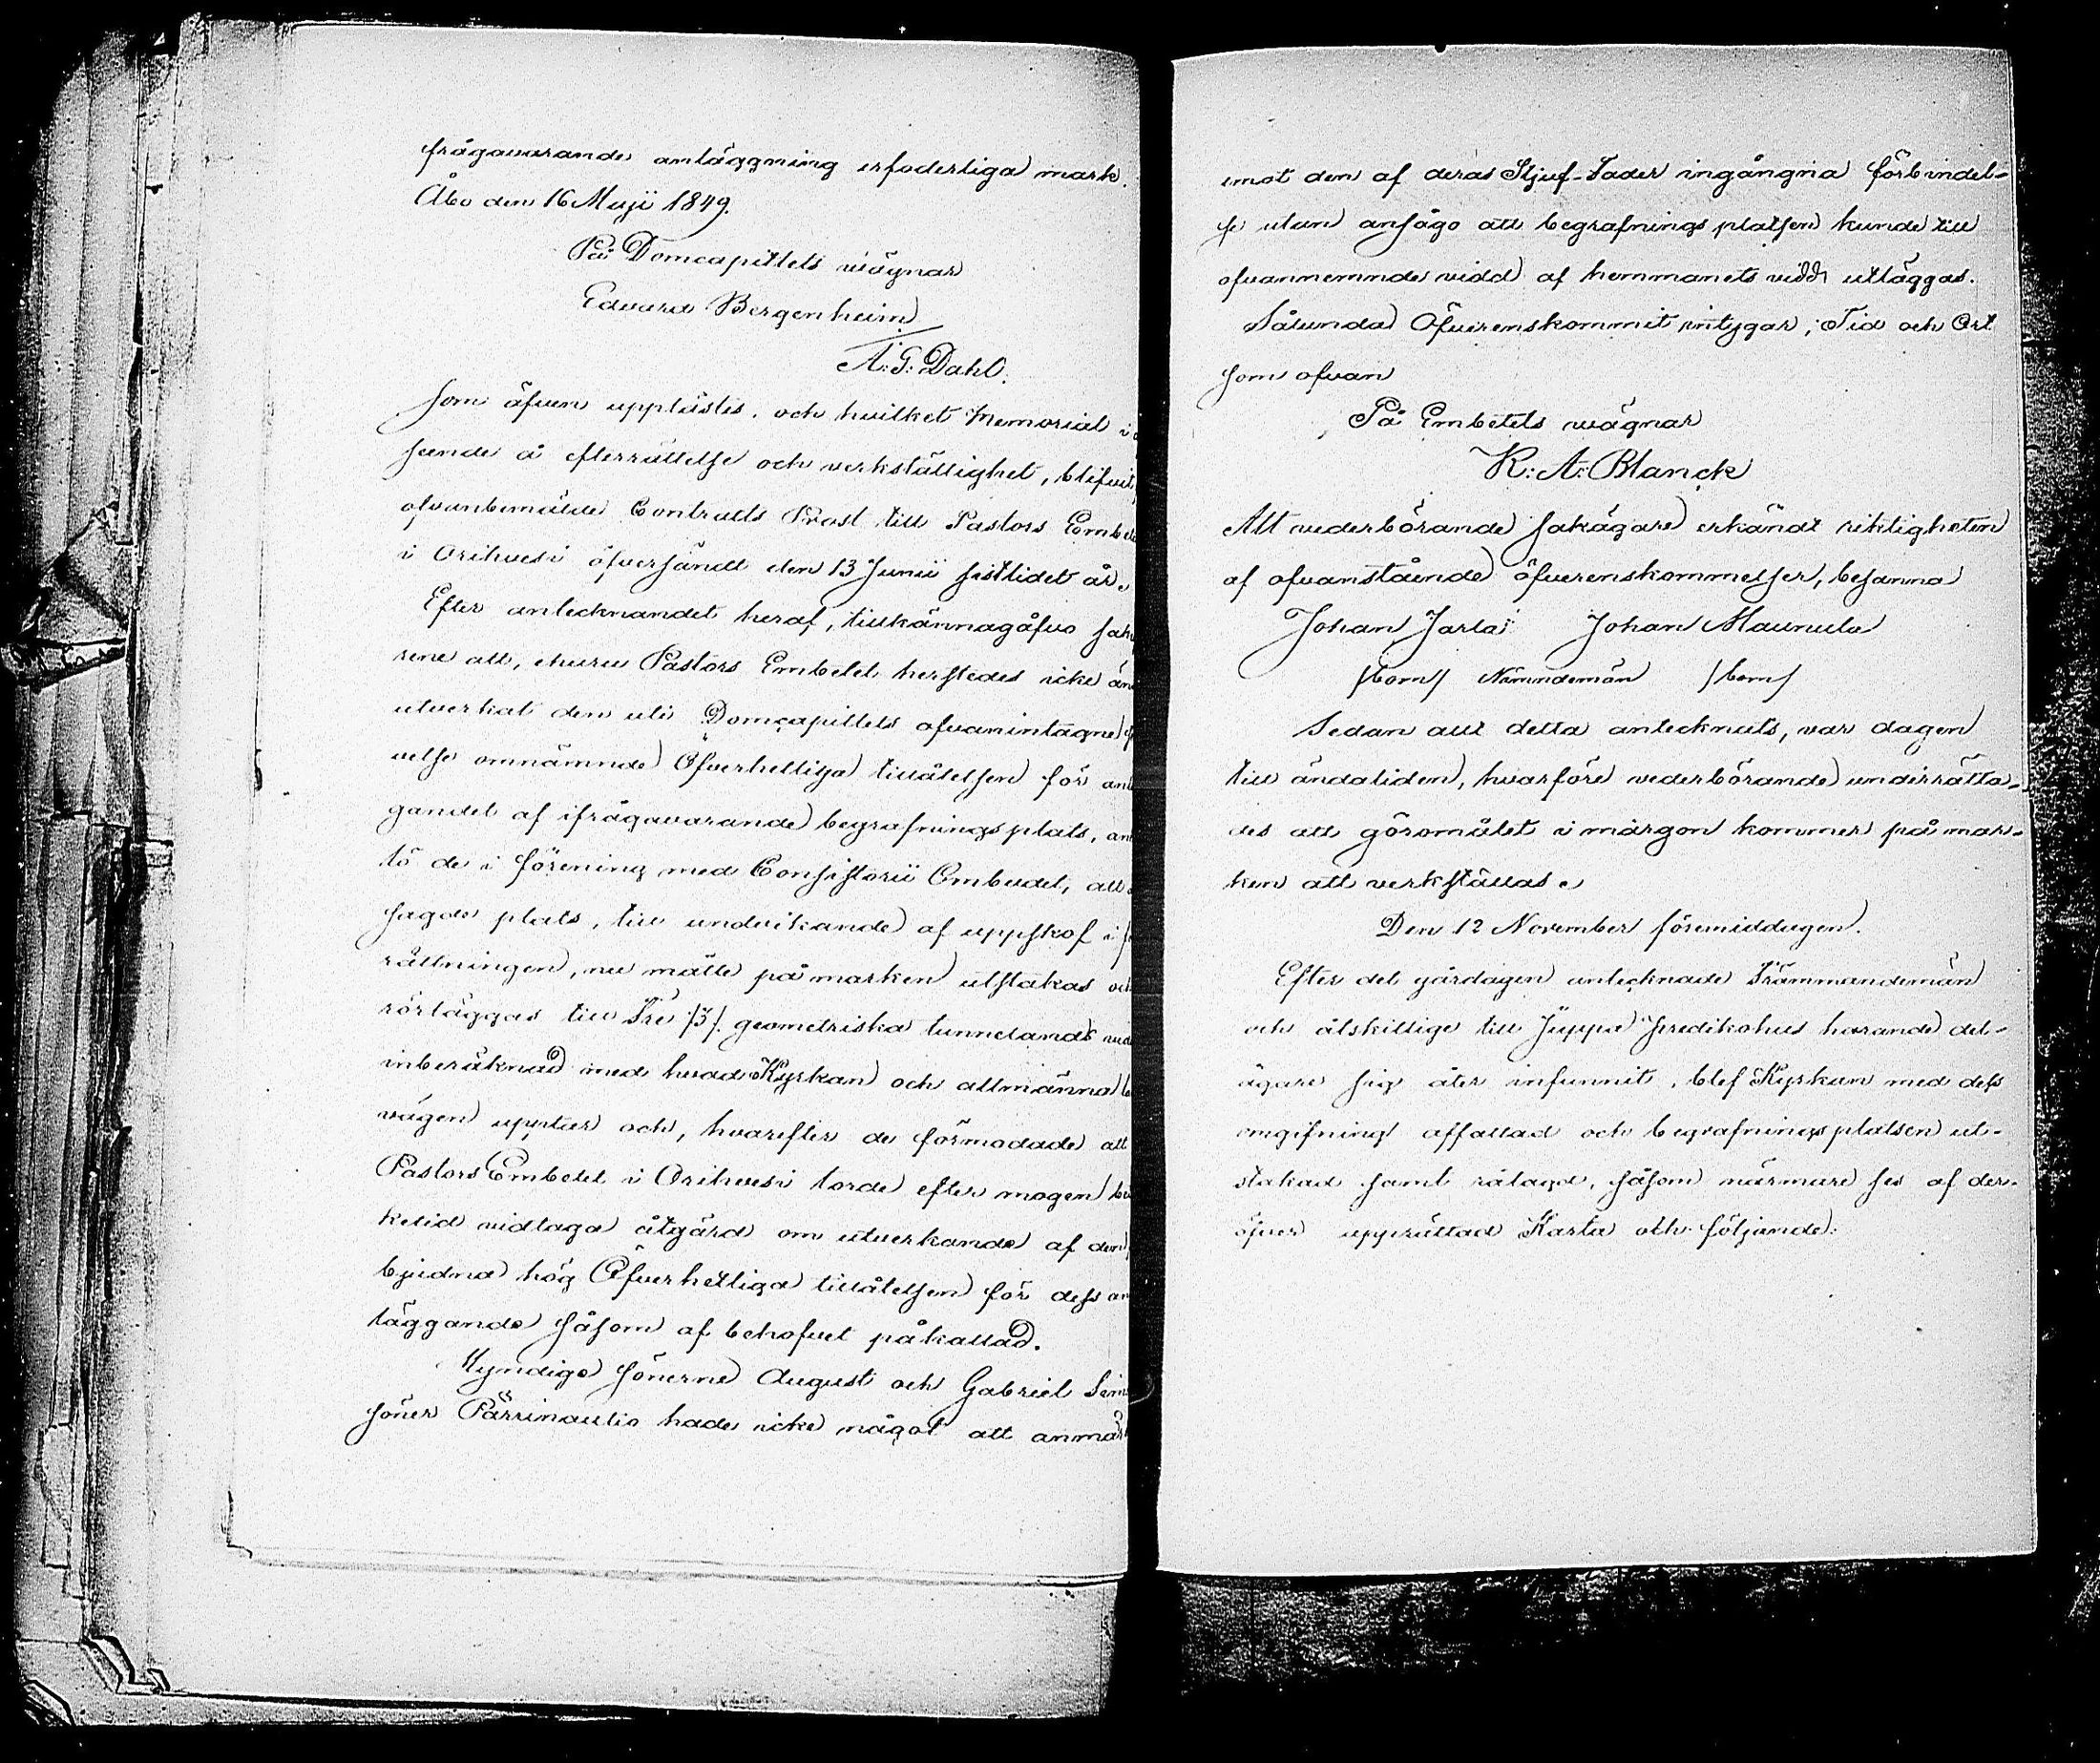 frågavarande anläggning erfoderliga mark.
Åbo den 16 Maji 1849.
På Domcapitlets wägnar
Edvard Bergenheim
A: G: Dahl.
som äfven upplästes, och hvilket Memorial i
seende å efterrättelse och verkställighet, blifvit
ofvanbemälde Contracts Prost till Pastors Embe
i Orihvesi öfversändt den 13 Junii sistlidet år.
Efter antecknandet heraf, tillkännagåfvo
rene att, ehuru Pastors Embetet herstedes icke än
utverkat den uti Domcapitlets ofvanintagne
velse omnämnde Öfverhetliga tillåtelsen för an
gandet af ifrågavarande begrafningsplats, an
tö de i förening med Consistorii Ombudet, att
sagde plats, till undvikande af uppskof i
rättningen, nu måtte på marken utstakas och
rörläggas till Tre /3/ geometriska tunnelands
inberäknad med hvad Kyrkan och allmänna
vägen upptar och, hvarefter de förmodade att
Pastors Embetet i Orihvesi torde efter mogen be
ketid vidtaga åtgärd om utverkande af den
bjudna hög Öfverhetliga tillåtelsen för dess an
läggande såsom af behofvet påkallad.
Myndige sönerne August och Gabriel
söner Pärrinaulio hade icke något att anmär
emot den af deras Stjuf-Fader ingångna förbindel-
se utan ansågo att begrafningsplatsen kunde till
ofvannemnde vidd af hemmanets vidd utläggas.
Sålunda Öfverenskommit intygar; Tid och Ort
som ofvan
På Embetets wägnar
K: A: Blanck
Att vederbörande sakägare erkändt riktigheten
af ofvanstående öfverenskommelser, besanna
Johan Jarla Johan Maunula
/bom/ Nämndemän /bom/
Sedan allt detta antecknats, var dagen
till ändaliden, hvarföre vederbörande underrätta-
des att göromålet i morgon kommer på mar-
ken att verkställas.
Den 12 November förmiddagen.
Efter det gårdagen antecknade Främmandemän
och åtskillige till Juppa predikohus hörande del-
ägare sig åter infunnit, blef Kyrkan med dess
omgifning affattad och begrafningsplatsen ut-
stakad samt rålagd, såsom närmare ses af der-
öfver upprättad Karta och följande: